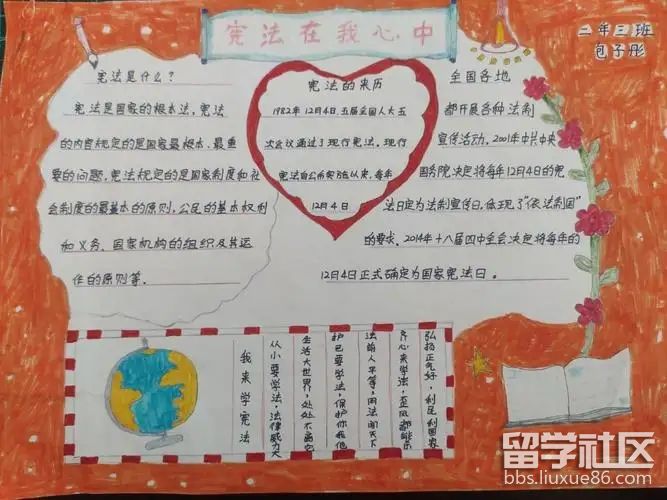 宪法在我心中
二年三班
包子彤
宪法是什么?
宪法是国家的根本法,宪法
的内容规定的是国家最根本、最重
要的问题,宪法规定的是国家制度和社
会制度的最基本的原则,公民的基本权利
和义务、国家机构的组织及其运
作的原则等.
宪法的来历
1982年12月4日,五届全国人大五
次会议通过了现行宪法,现行
宪法自公布实施以来,每年
12月4日
全国各地
都开展各种法制
宣传活动,2001年中共中央
国务院决定将每年12月4日的宪
法日定为法制宣传日,体现了“依法制国”
的要求。2014年十八届四中全会决定将每年的
12月4日正式确定为国家宪法日。
我来学宪法
从小要学法,法律威力大
生活大世界,处处不离它
护己要学法,保护你我他
法前人平等,用法闯天下
齐心来学法,歪风都能杀
弘扬正气好,利民利国家
留学社区
bbs.liuxue86.com